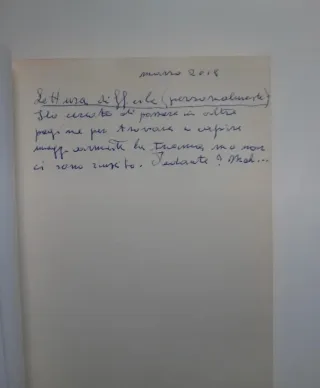 marzo 2018
Lettura difficile (personalmente)
Ho cercato di passare in altre
pagine per provare a capire
maggiormente la trama ma non
ci sono riuscito. Pedante? Mah...